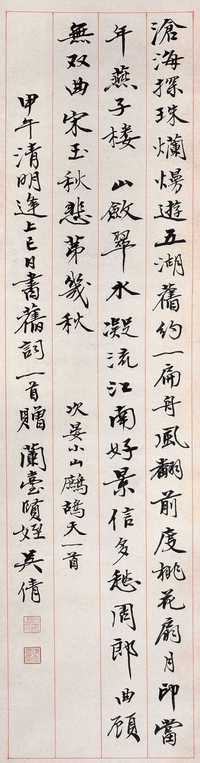 滄海探珠爛熳遊五湖舊約一扁舟風翻前度桃花扇月印當
年燕子樓 山斂翠水凝流江南好景信多愁周郎曲顧
無双曲宋玉秋悲苐幾秋 次晏小山鷓鴣天一首
甲午清明逢上巳日書舊詞一首贈 蘭臺頤姪 吴倩